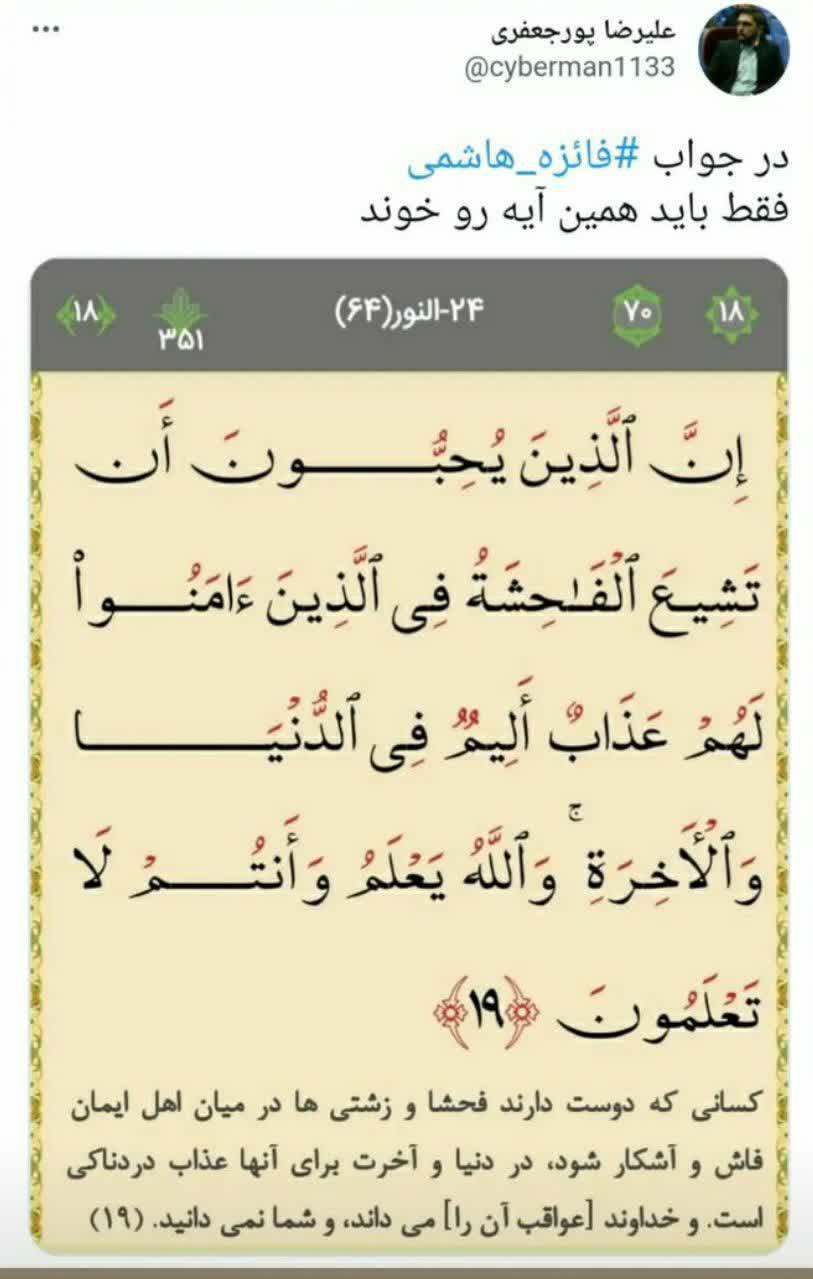 علیرضا پورجعفری
@cyberman1133
در جواب #فائزه_هاشمی
فقط باید همین آیه رو خوند
۱۸ ۷۰ ۲۴-النور(۶۴) ۳۵۱ ۱۸
إِنَّ ٱلَّذِينَ يُحِبُّونَ أَن
تَشِيعَ ٱلْفَـٰحِشَةُ فِى ٱلَّذِينَ ءَامَنُوا۟
لَهُمْ عَذَابٌ أَلِيمٌ فِى ٱلدُّنْيَا
وَٱلْأَخِرَةِ ۚ وَٱللَّهُ يَعْلَمُ وَأَنتُمْ لَا
تَعْلَمُونَ ﴿۱۹﴾
کسانی که دوست دارند فحشا و زشتی ها در میان اهل ایمان
فاش و آشکار شود، در دنیا و آخرت برای آنها عذاب دردناکی
است. و خداوند [عواقب آن را] می داند، و شما نمی دانید. (۱۹)